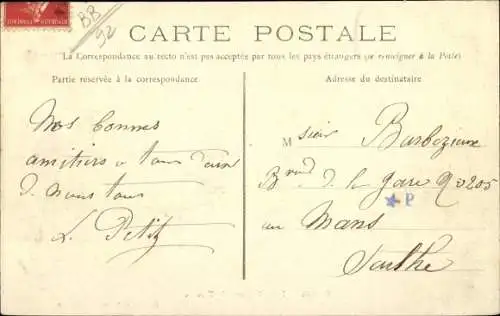 BB
92
CARTE POSTALE
La Correspondance au recto n'est pas acceptée par tous les pays étrangers (se renseigner à la Poste)
Partie réservée à la correspondance.
Adresse du destinataire
Nos bonnes
amitiers a tous
D nous tous
L. Petit
Msieur Barbezieux
Bvard D. la gare
P
au Mans
Sarthe